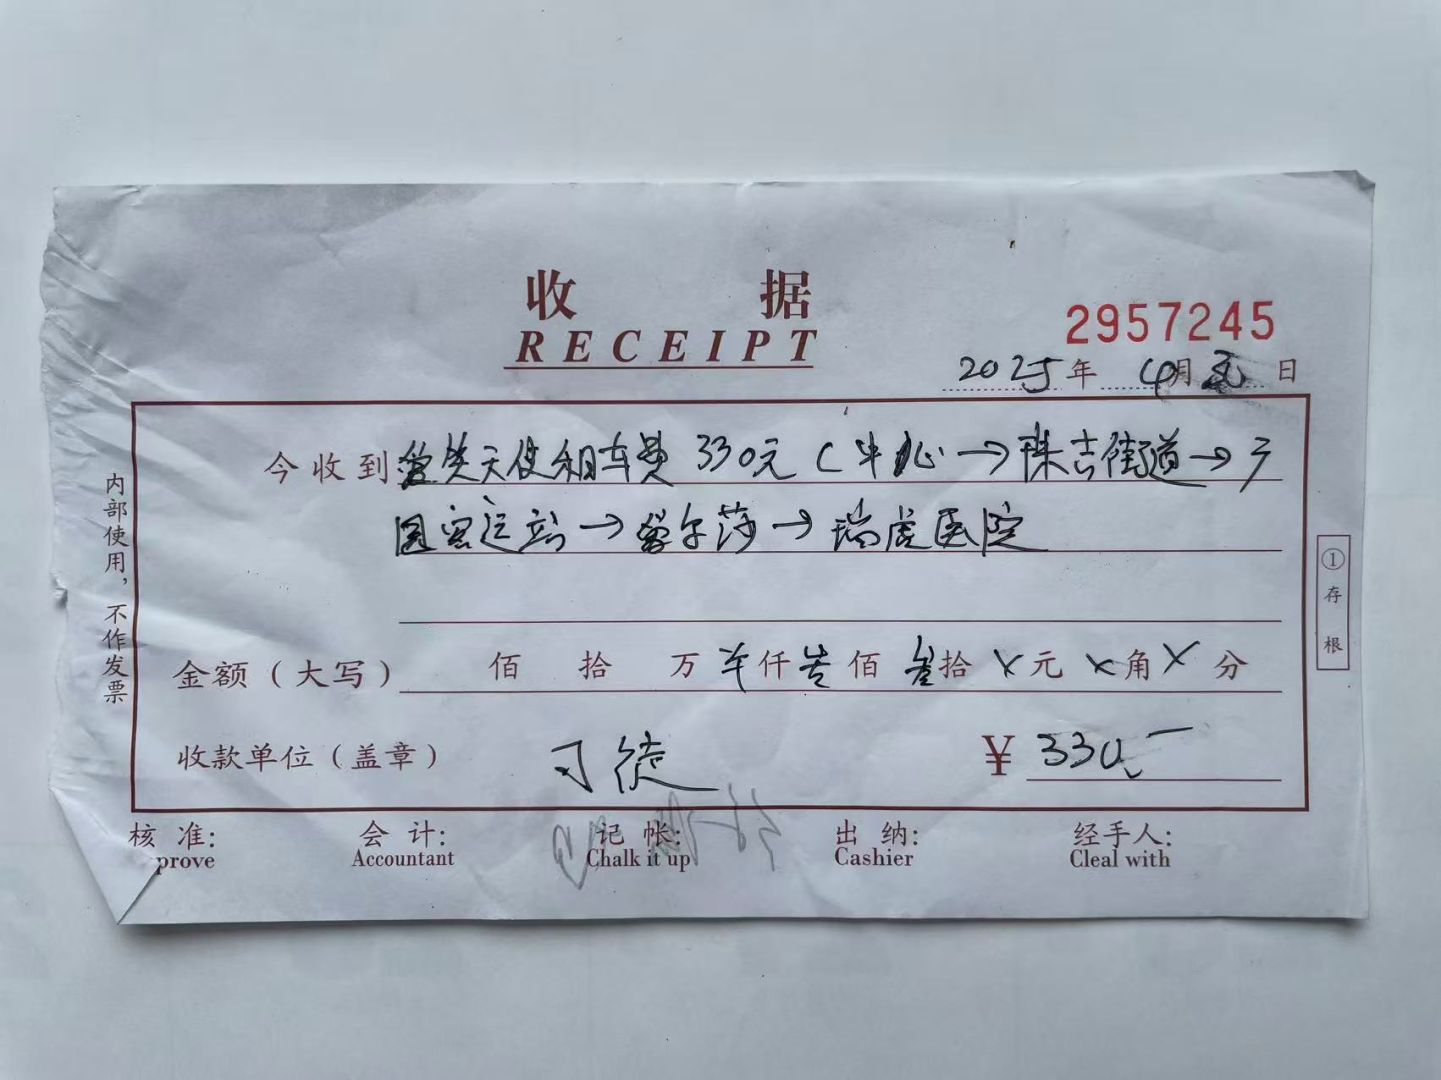 收 据
RECEIPT
2957245
2025年 4月 日
今收到 天使租车费 330元 (中心→珠吉街道→
客运站→ 尔莎→瑞 医院
金额(大写) 佰 拾 万 仟 佰 叁拾 X元 X角 X分
收款单位(盖章) ¥ 330
核 准: 会 计: 记 帐: 出 纳: 经手人:
prove Accountant Chalk it up Cashier Cleal with
内部使用，不作发票
①存根